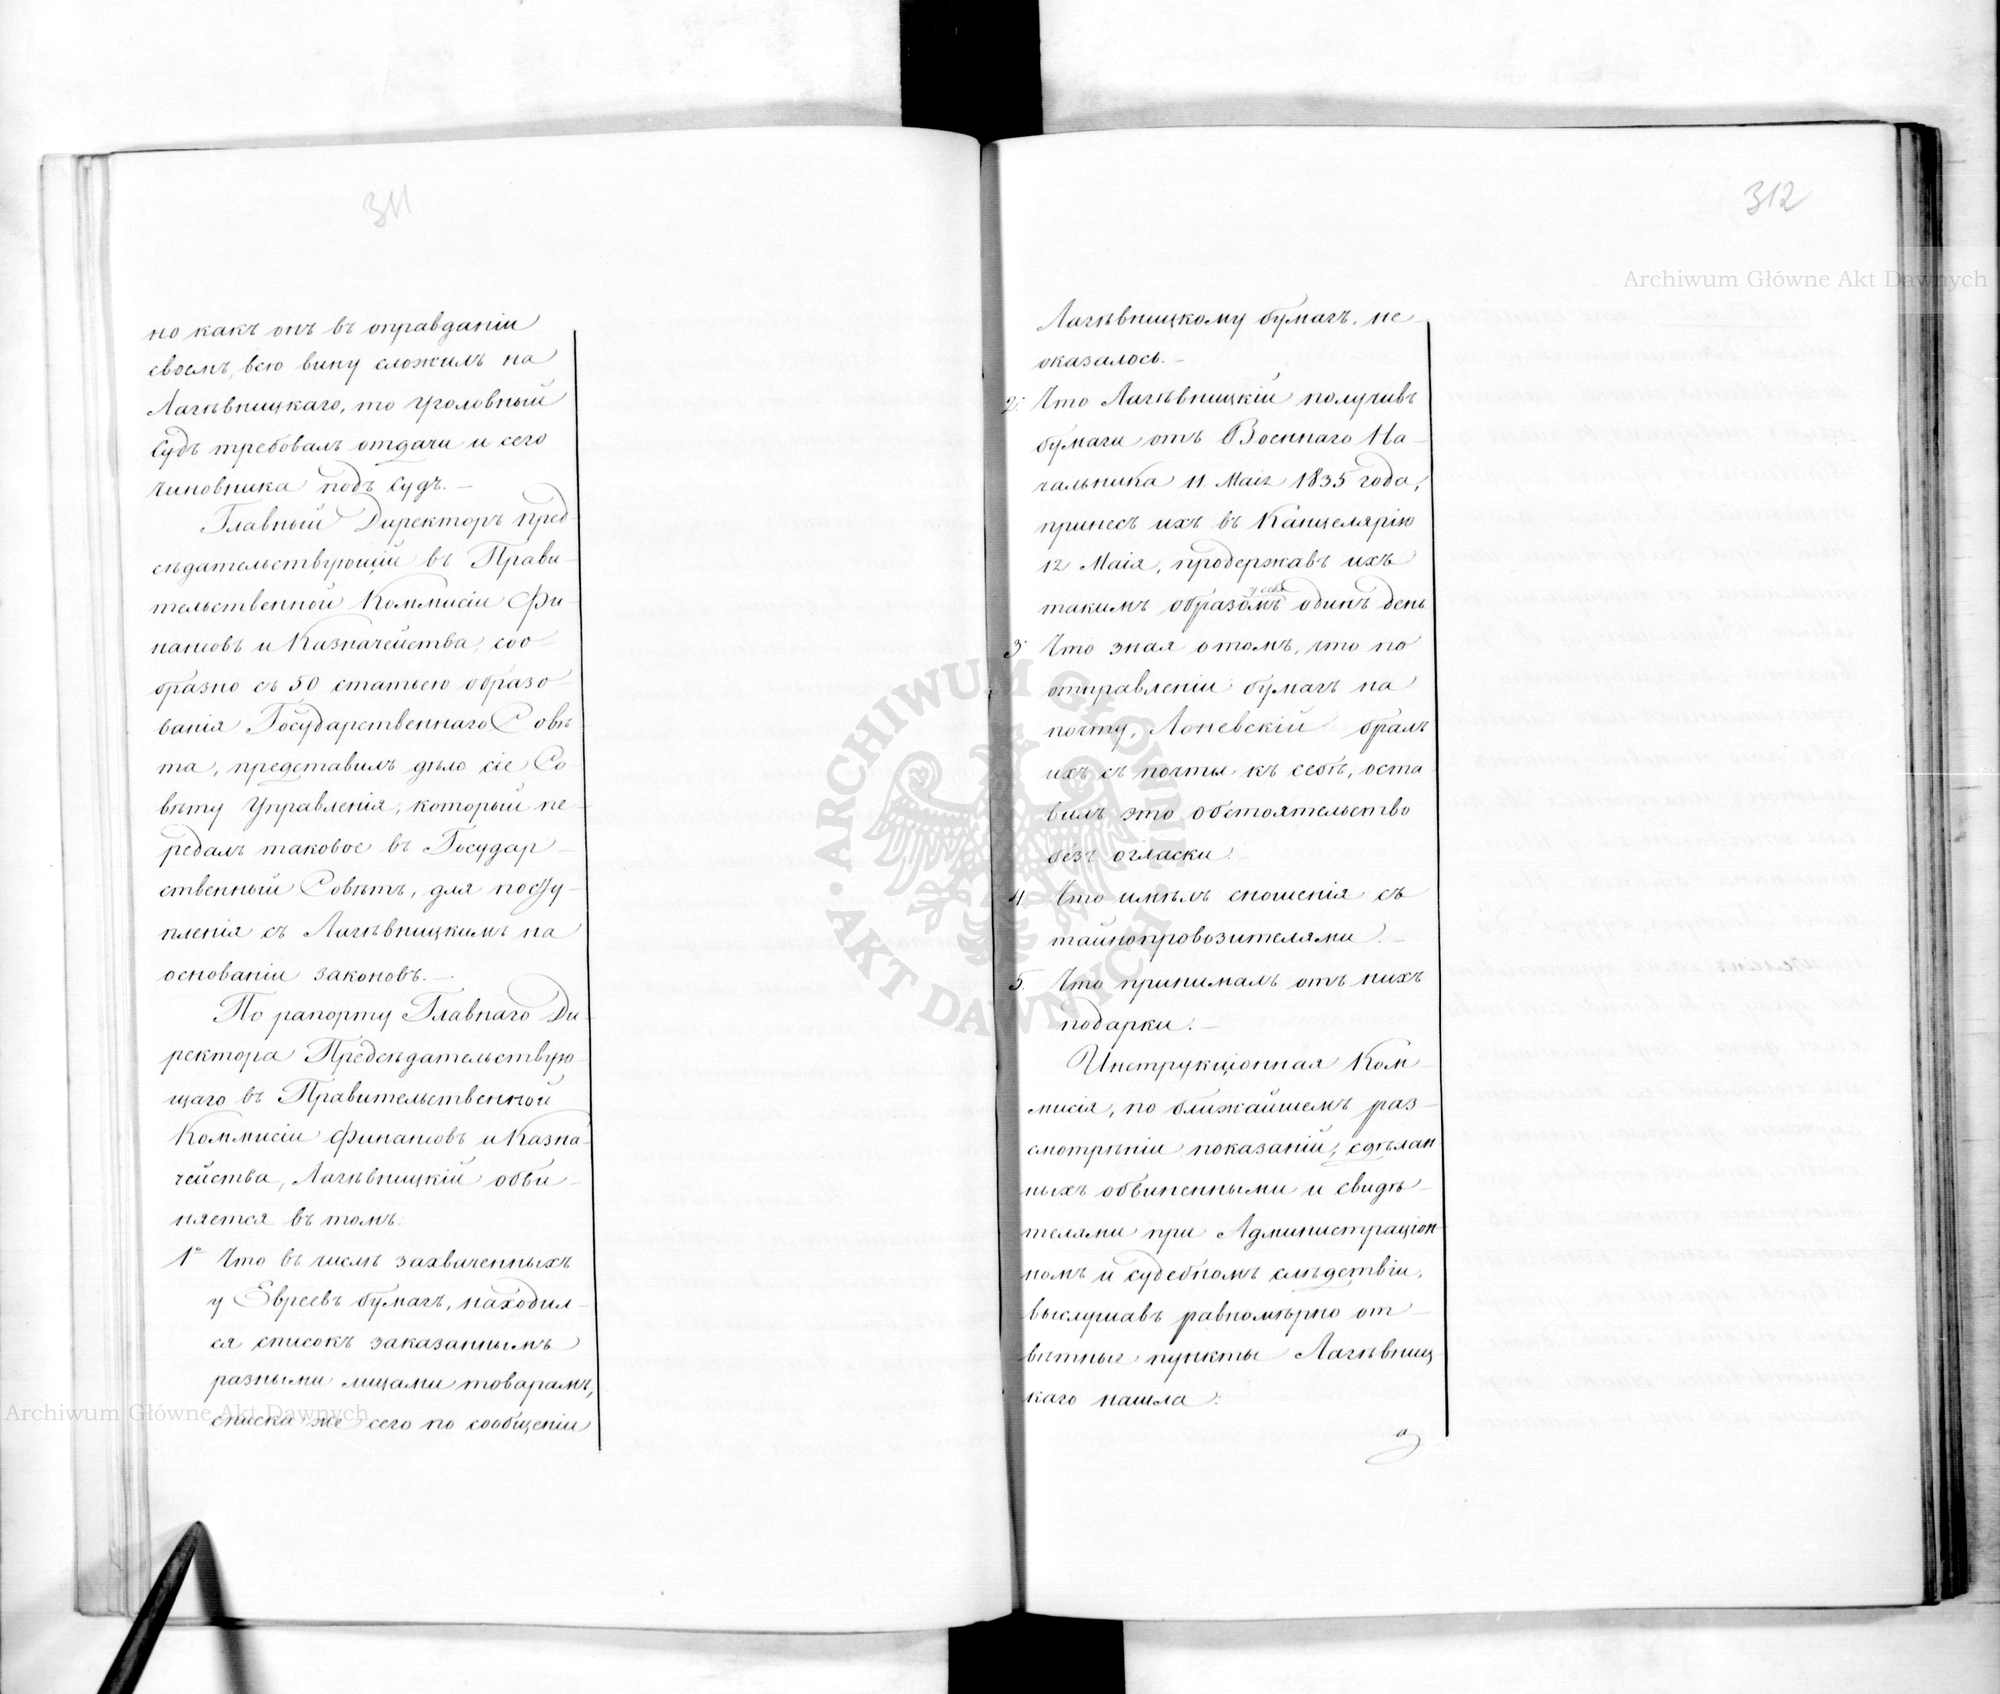 311
но какъ онъ въ оправданіи
своемъ, всю вину сложилъ на
Лагѣвницкаго, то Уголовный
Судъ требовалъ отдачи и сего
чиновника подъ судъ. —
Главный Директоръ пред-
сѣдательствующій въ Прави-
тельственной Коммисіи Фи-
нансовъ и Казначейства, соо-
бразно съ 50 статьею образо-
ванія Государственнаго Совѣ-
та, представилъ дѣло сіе Со-
вѣту Управленія, который пе-
редалъ таковое въ Государ-
ственный Совѣтъ, для посту-
пленія съ Лагѣвницкимъ на
основаніи законовъ. —
По рапорту Главнаго Ди-
ректора Предсѣдательствую-
щаго въ Правительственной
Коммисіи Финансовъ и Казна-
чейства, Лагѣвницкій обви-
няется въ томъ:
1° Что въ числѣ захваченныхъ
у Евреевъ бумагъ, находил-
ся списокъ заказаннымъ
разными лицами товарамъ,
списка же сего по сообщеніи
312
Лагѣвницкому бумагъ, не
оказалось. —
2. Что Лагѣвницкій получивъ
бумаги отъ Военнаго На-
чальника 11 Маія 1835 года,
принесъ ихъ въ Канцелярію
12 Маія, продержавъ ихъ
у себя
такимъ образомъ одинъ день
3. Что зная о томъ, что по
отправленіи бумагъ на
почту, Лопевскій бралъ
ихъ съ почты къ себѣ, оста-
вилъ это обстоятельство
безъ огласки. —
4 Что имѣлъ сношенія съ
тайнопровозителями. —
5. Что принималъ отъ нихъ
подарки. —
Инструкціонная Ком-
мисія, по ближайшемъ раз-
смотрѣніи показаній, сдѣлан
ныхъ обвиненными и свидѣ-
телями при Администраціон
номъ и судебномъ слѣдствіи,
выслушавъ равномѣрно от-
вѣтные пункты Лагѣвниц
каго нашла:
Archiwum Główne Akt Dawnych
ARCHIWUM GŁÓWNE AKT DAWNYCH
Archiwum Główne Akt Dawnych